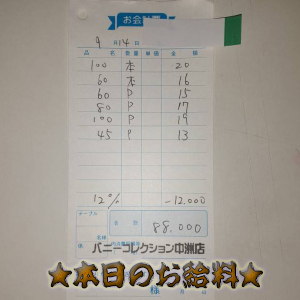 お会計票
9月14日
品名 数量 単価 金額
100 本 20
60 本 16
60 P 15
80 P 17
100 P 19
45 P 13
12% -12.000
テーブル
合計 88.000
バニーコレクション中洲店
様
★本日のお給料★